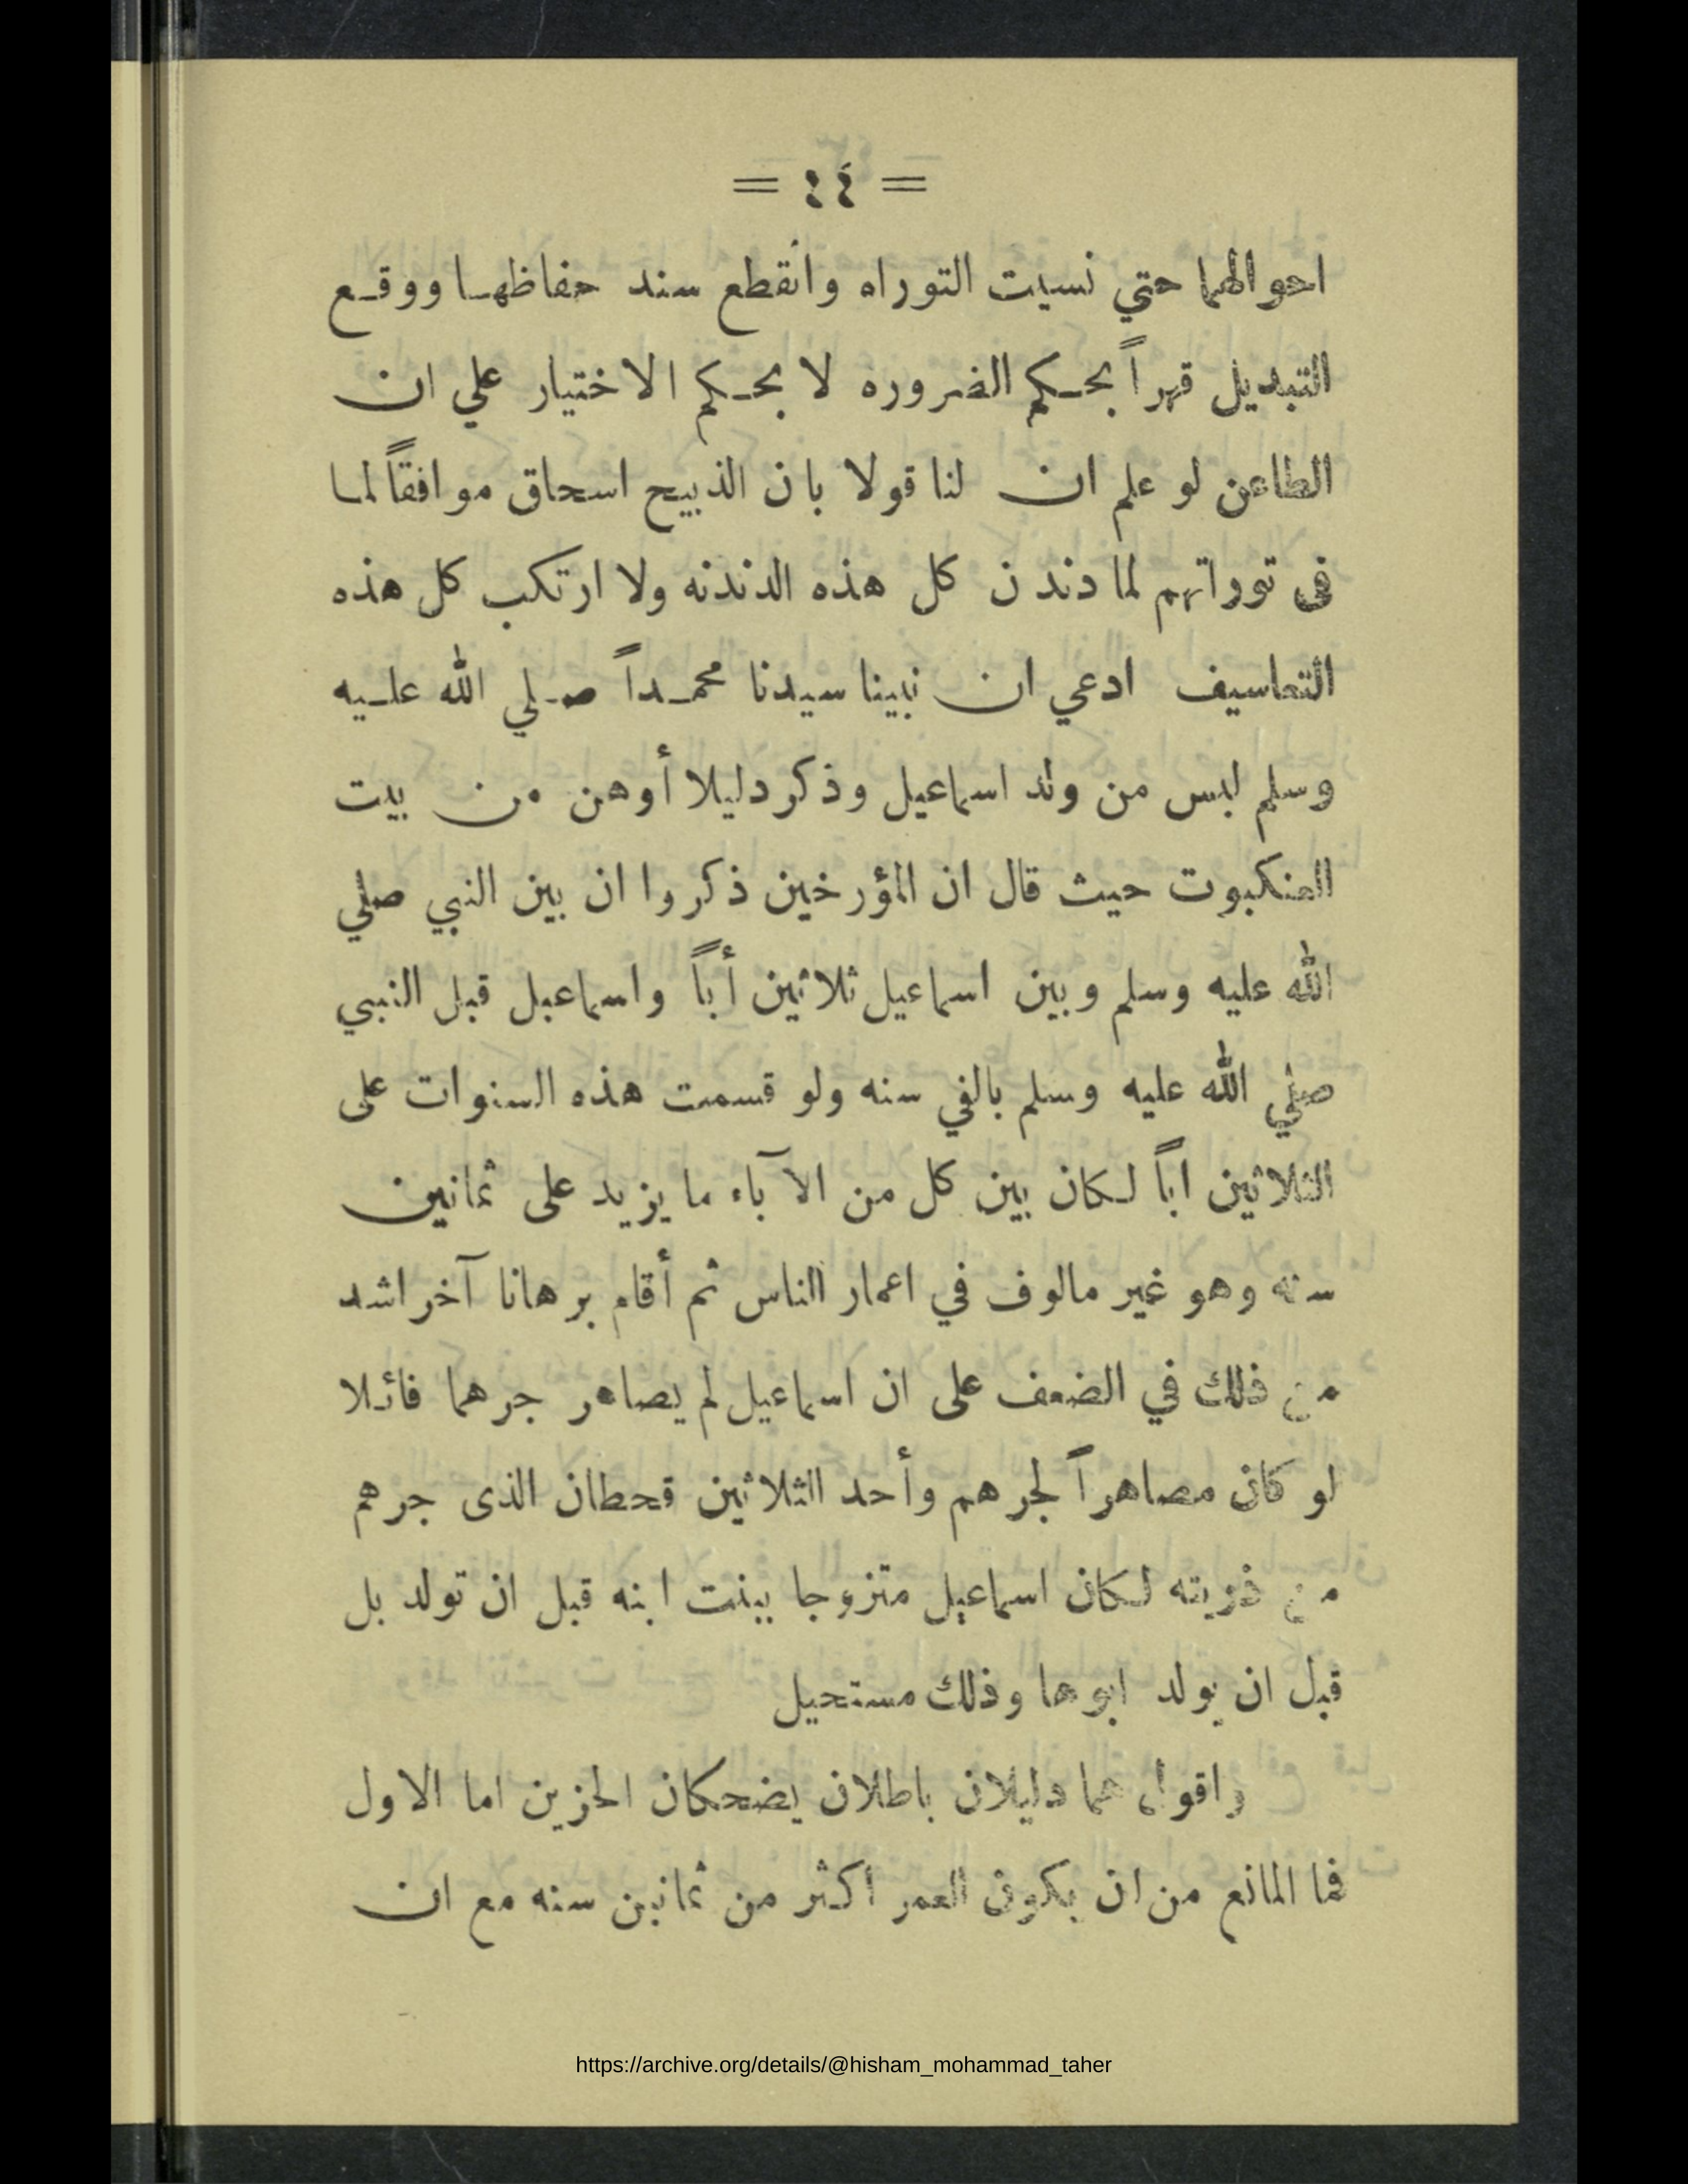 = ٤٤ =
احوالهما حتي نسيت التوراه وانقطع سند حفاظها ووقع
التبديل قهراً بحكم الضروره لا بحكم الاختيار علي ان
الطاعن لو علم ان لنا قولا بان الذبيح اسحاق موافقاً لما
في توراتهم لما دندن كل هذه الدندنه ولا ارتكب كل هذه
التعاسيف ادعي ان نبينا سيدنا محمداً صلي الله عليه
وسلم ليس من ولد اسماعيل وذكر دليلا أوهن من بيت
العنكبوت حيث قال ان المؤرخين ذكروا ان بين النبي صلي
الله عليه وسلم وبين اسماعيل ثلاثين أباً واسماعيل قبل النبي
صلي الله عليه وسلم بالفي سنه ولو قسمت هذه السنوات على
الثلاثين اباً لكان بين كل من الآباء ما يزيد على ثمانين
سنه وهو غير مالوف في اعمار الناس ثم أقام برهانا آخر اشد
من ذلك في الضعف على ان اسماعيل لم يصاهر جرهما قائلا
لو كان مصاهراً لجرهم وأحد الثلاثين قحطان الذى جرهم
من ذريته لكان اسماعيل متزوجا ببنت ابنه قبل ان تولد بل
قبل ان يولد ابوها وذلك مستحيل
واقول هما دليلان باطلان يضحكان الحزين اما الاول
فما المانع من ان يكون العمر اكثر من ثمانين سنه مع ان
https://archive.org/details/@hisham_mohammad_taher